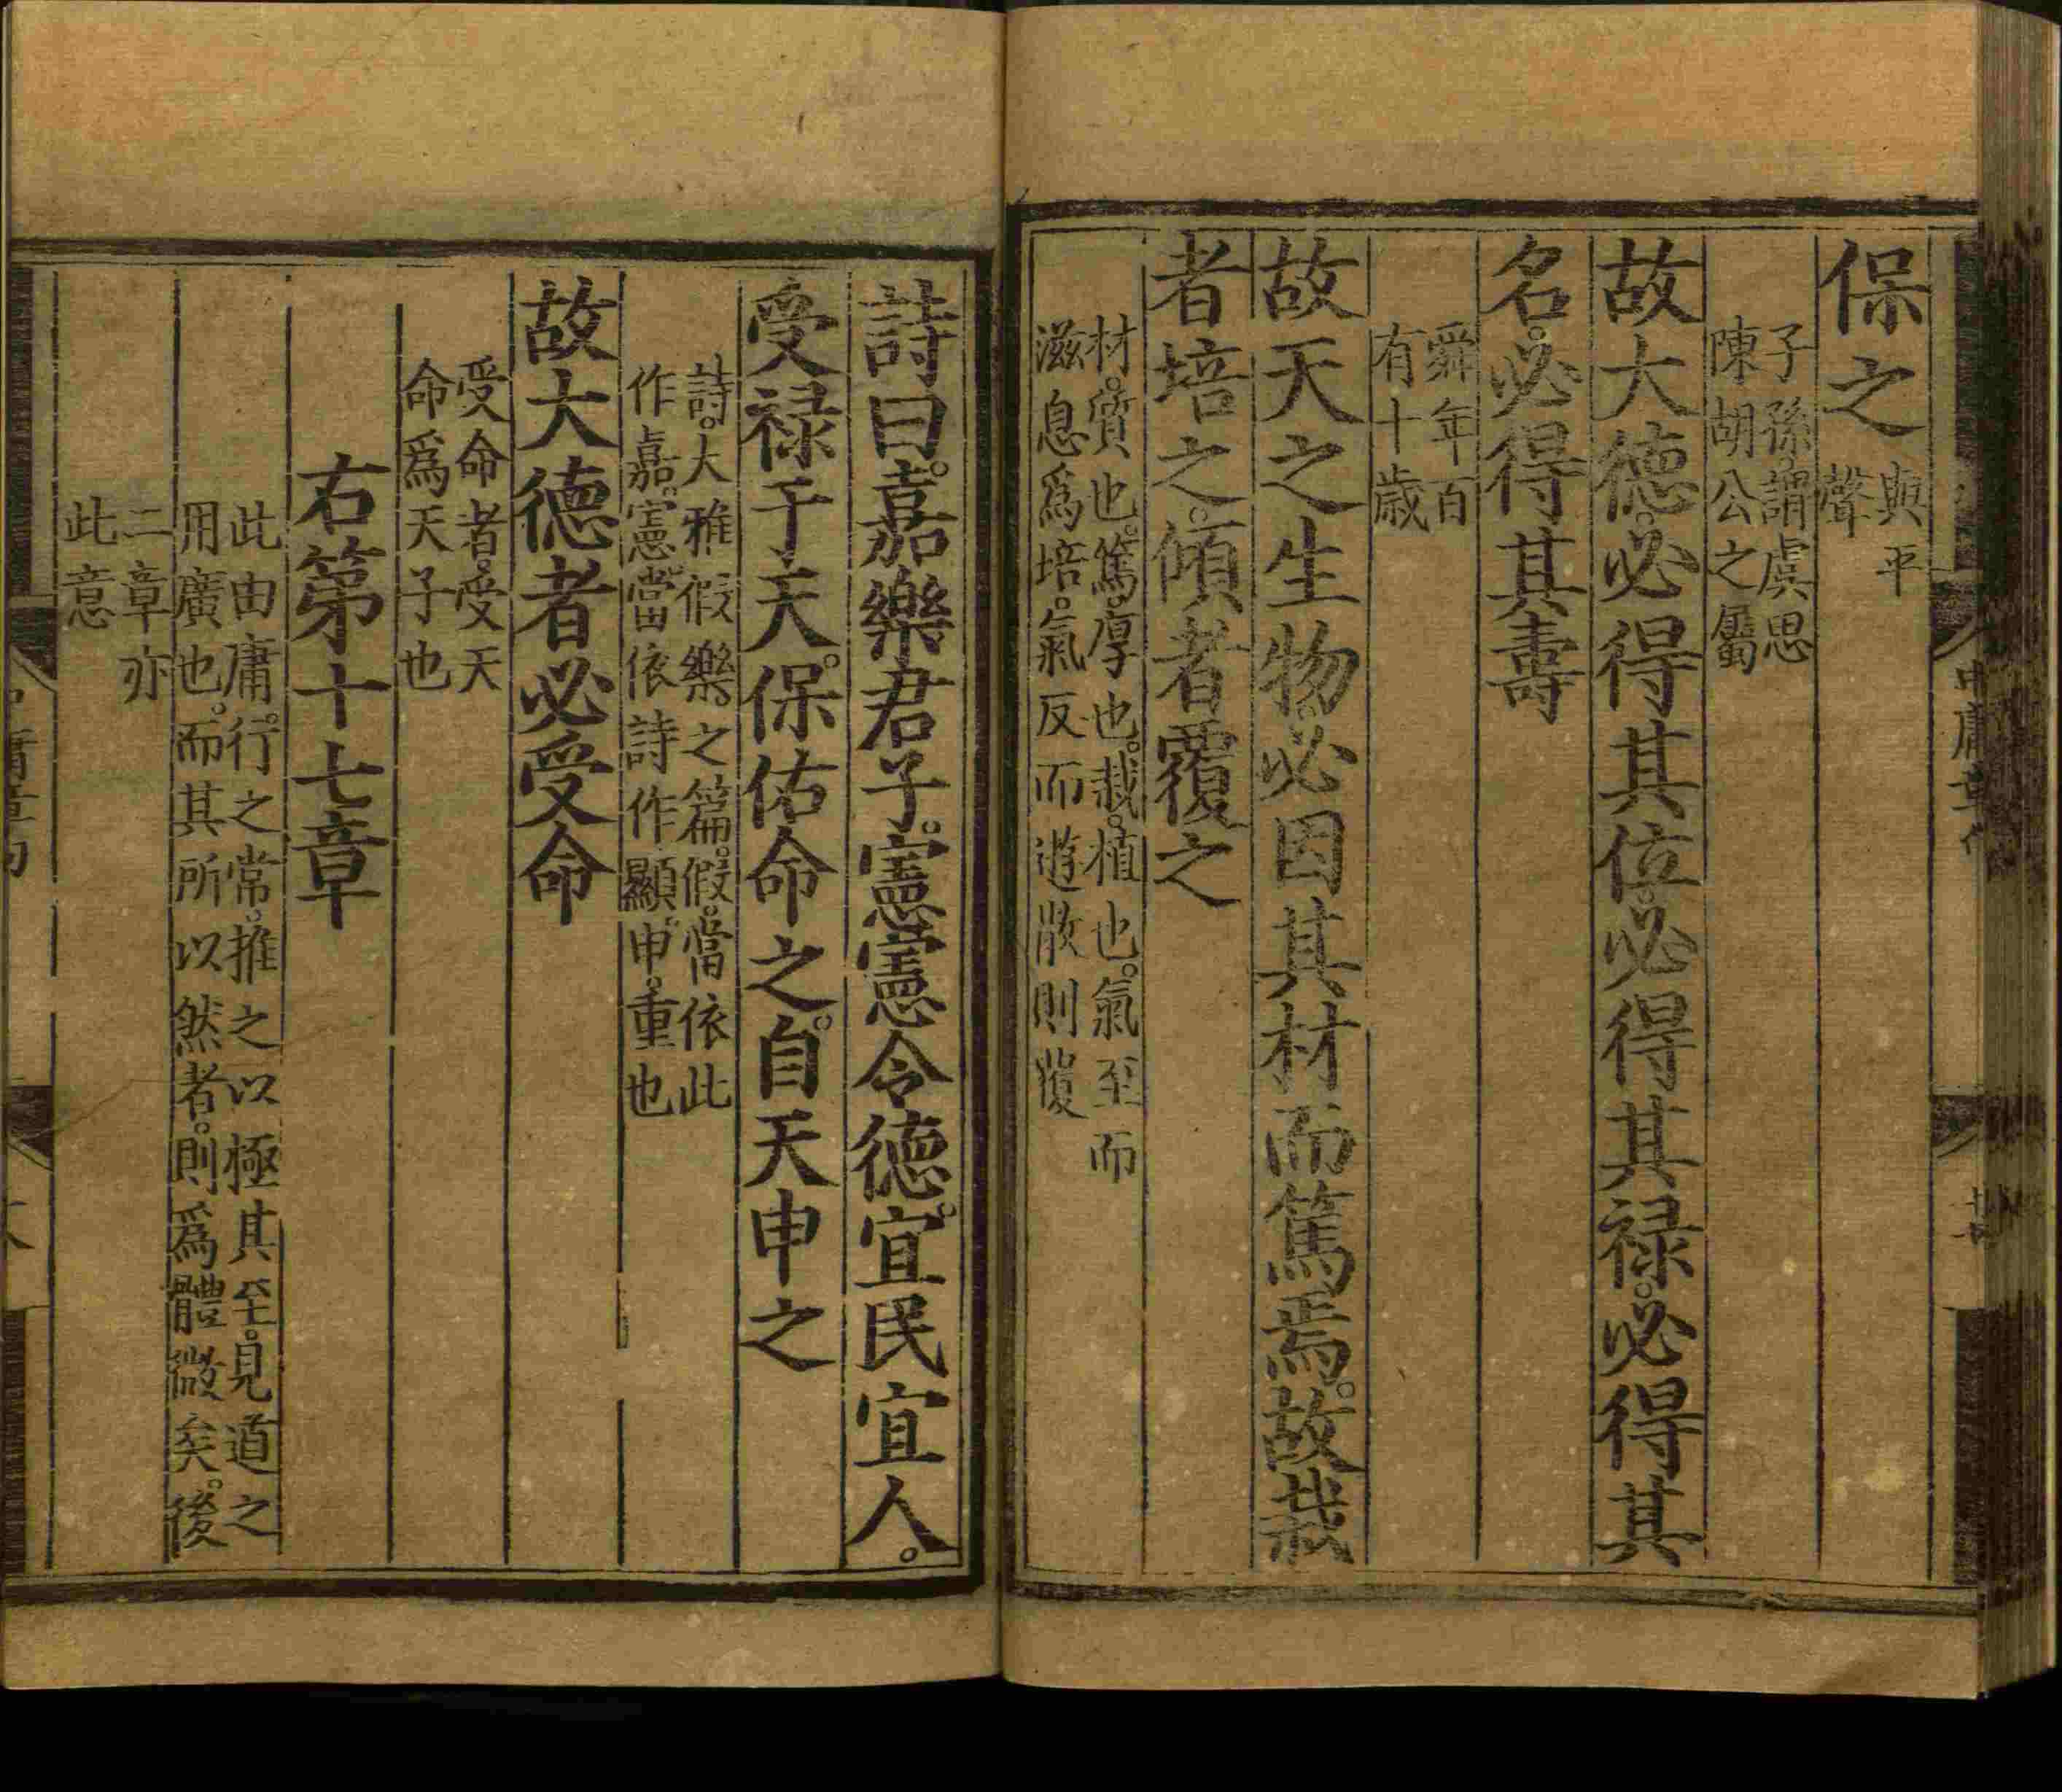 保之
與平
聲
子孫。謂虞思
陳胡公之屬
故大德。必得其位。必得其禄。必得其
名。必得其壽
舜年百
有十歲
故天之生物。必因其材而篤焉。故栽
者培之。傾者覆之
材。質也。篤。厚也。栽。植也。氣至而
滋息爲培。氣反而遊散則覆
詩曰。嘉樂君子。憲憲令德。宜民宜人。
受禄于天。保佑命之。自天申之
詩。大雅假樂。之篇。假。當依此
作嘉。憲。當依詩作顯。申。重也
故大德者必受命
受命者。受天
命爲天子也
右第十七章
此由庸。行之常。推之以極其至。見道之
用廣也。而其所以然者。則爲體微矣。後
二章亦
此意